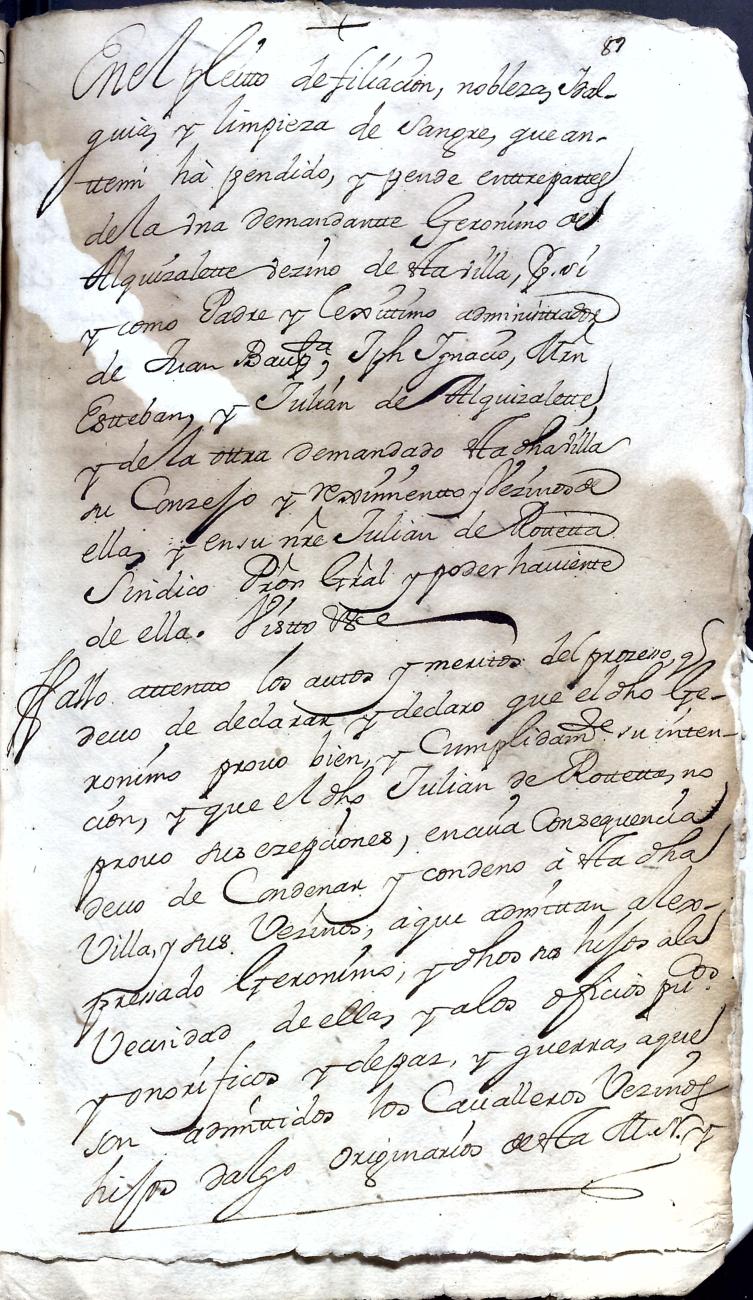 87
En el pleitto de filiacion, nobleza, Ydal-
guia, y limpieza de sangre, que an-
ttemi hà pendido, y pende enttre parttes
de la Vna demandantte Geronimo de
Alquizalette vezino de Sta villa, P. si
y como Padre y Lexittimo administrador
de Juan Baup.ta, Jph Ygnacio, Mrn
Estteban, y Julian de Alquizalette,
y de la ottra demandado Sta dha villa
su Conzejo y reximientto y Vezinos de
ella, y en su nre Julian de Rottetta
Sindico Prõr Grãl y poder haviente
de ella. Vistto V&e
Fallo attentto los autos y meritos del prozesso, q
devo de declarar y declaro que el dho Ge-
ronimo provo bien, y Cumplidam.te su inten-
cion, y que el dho Julian de Rottetta, no
provo sus exepciones, en cuia Consequencia
devo de Condenar y condeno à Sta dha
Villa, y sus Vezinos, à que admittan al ex-
pressado Geronimo, y dhos sus hijos a la
Vecindad de ella, y a los oficios pu.cos
y onorificos y de paz, y guerra, à que
son admittidos los Cavalleros Vezinos
hijos dalgo originarios de Sta M. N. y